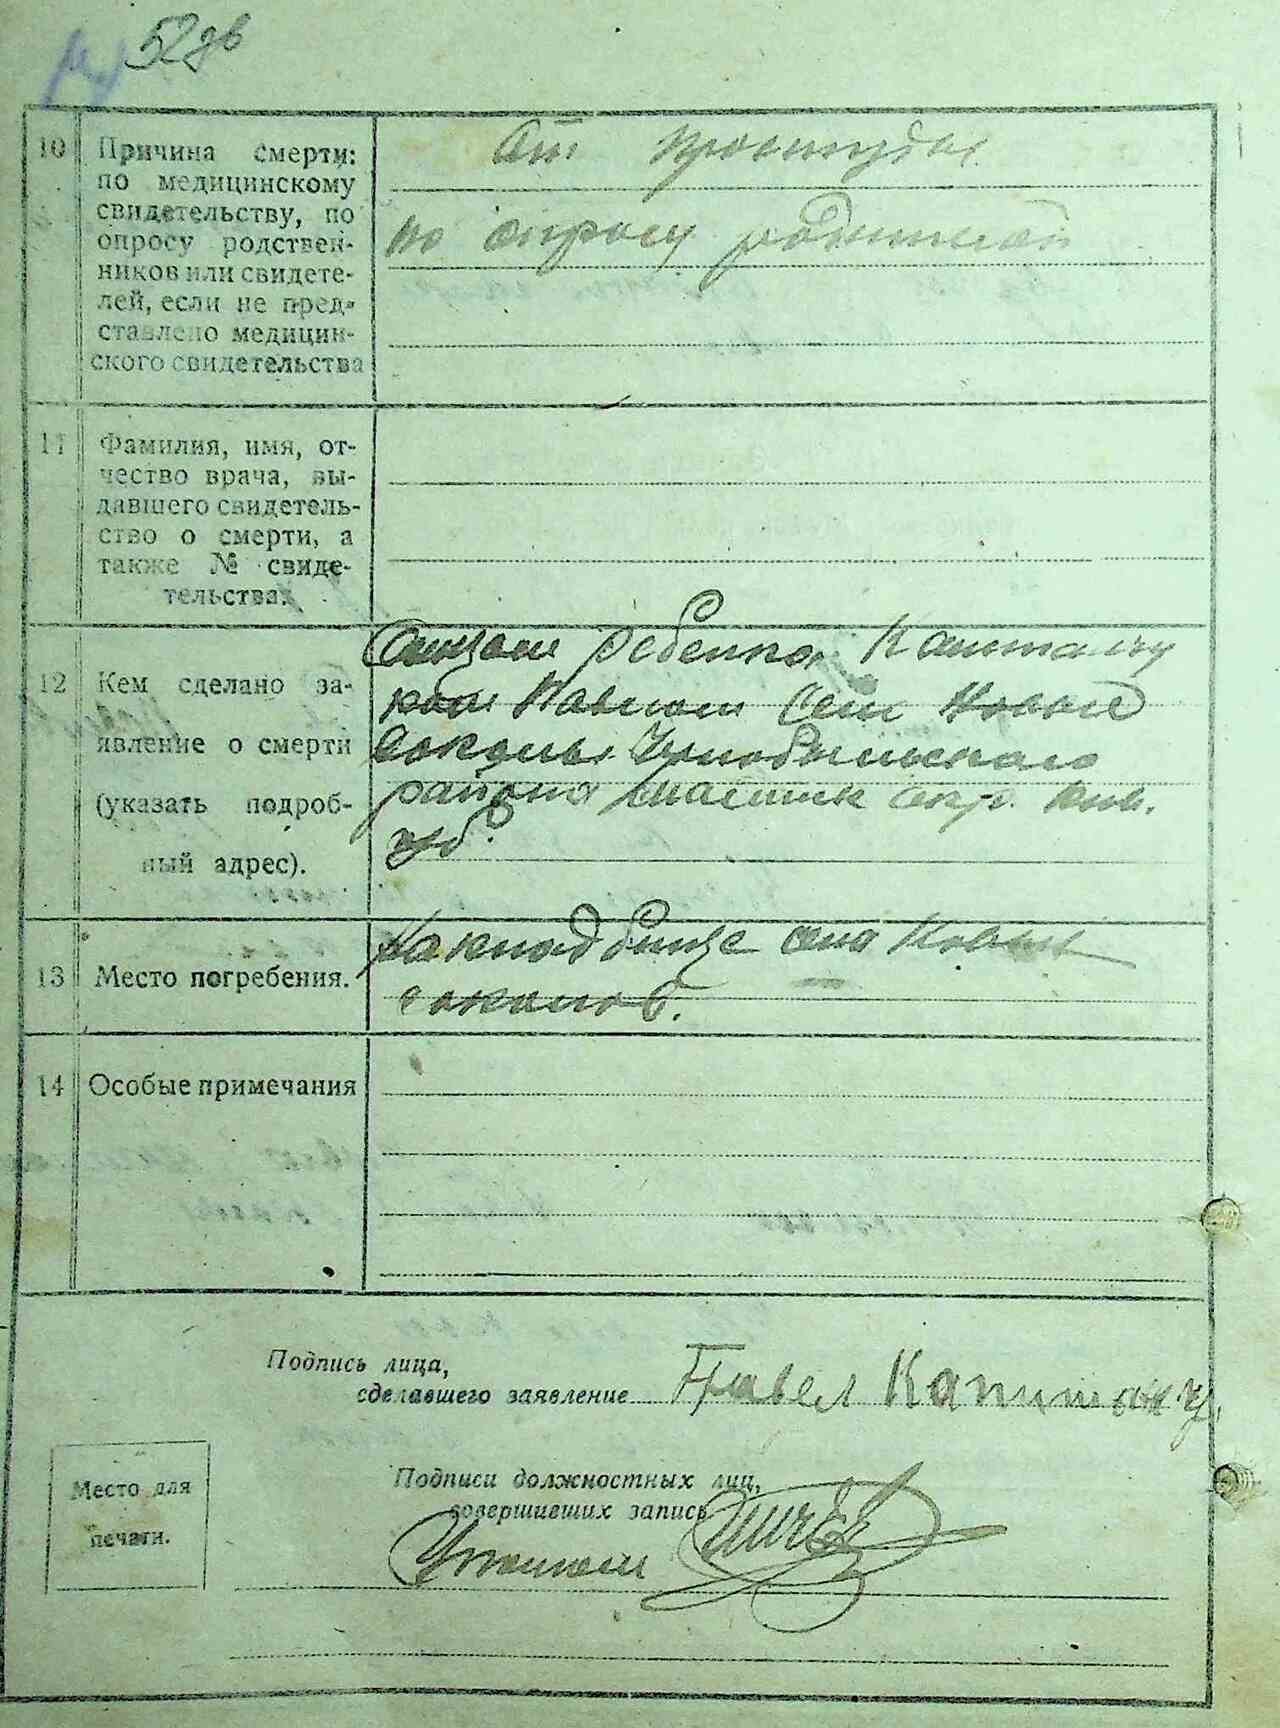 52 зв
10 Причина смерти:
по медицинскому
свидетельству, по
опросу родствен-
ников или свидете-
лей, если не пред-
ставлено медицин-
ского свидетельства
От простуды
по опросу родителей
11 Фамилия, имя, от-
чество врача, вы-
давшего свидетель-
ство о смерти, а
также № свиде-
тельства.
12 Кем сделано за-
явление о смерти
(указать подроб-
ный адрес).
Отцом ребенка
Павлом
района окр. Киев.
губ.
13 Место погребения.
На кладбище села Новых
соколов.
14 Особые примечания
Подпись лица,
сделавшего заявление Павел
Место для
печати.
Подписи должностных лиц,
совершивших запись